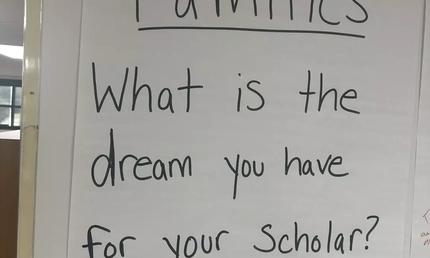 Families
What is the
dream you have
for your Scholar?